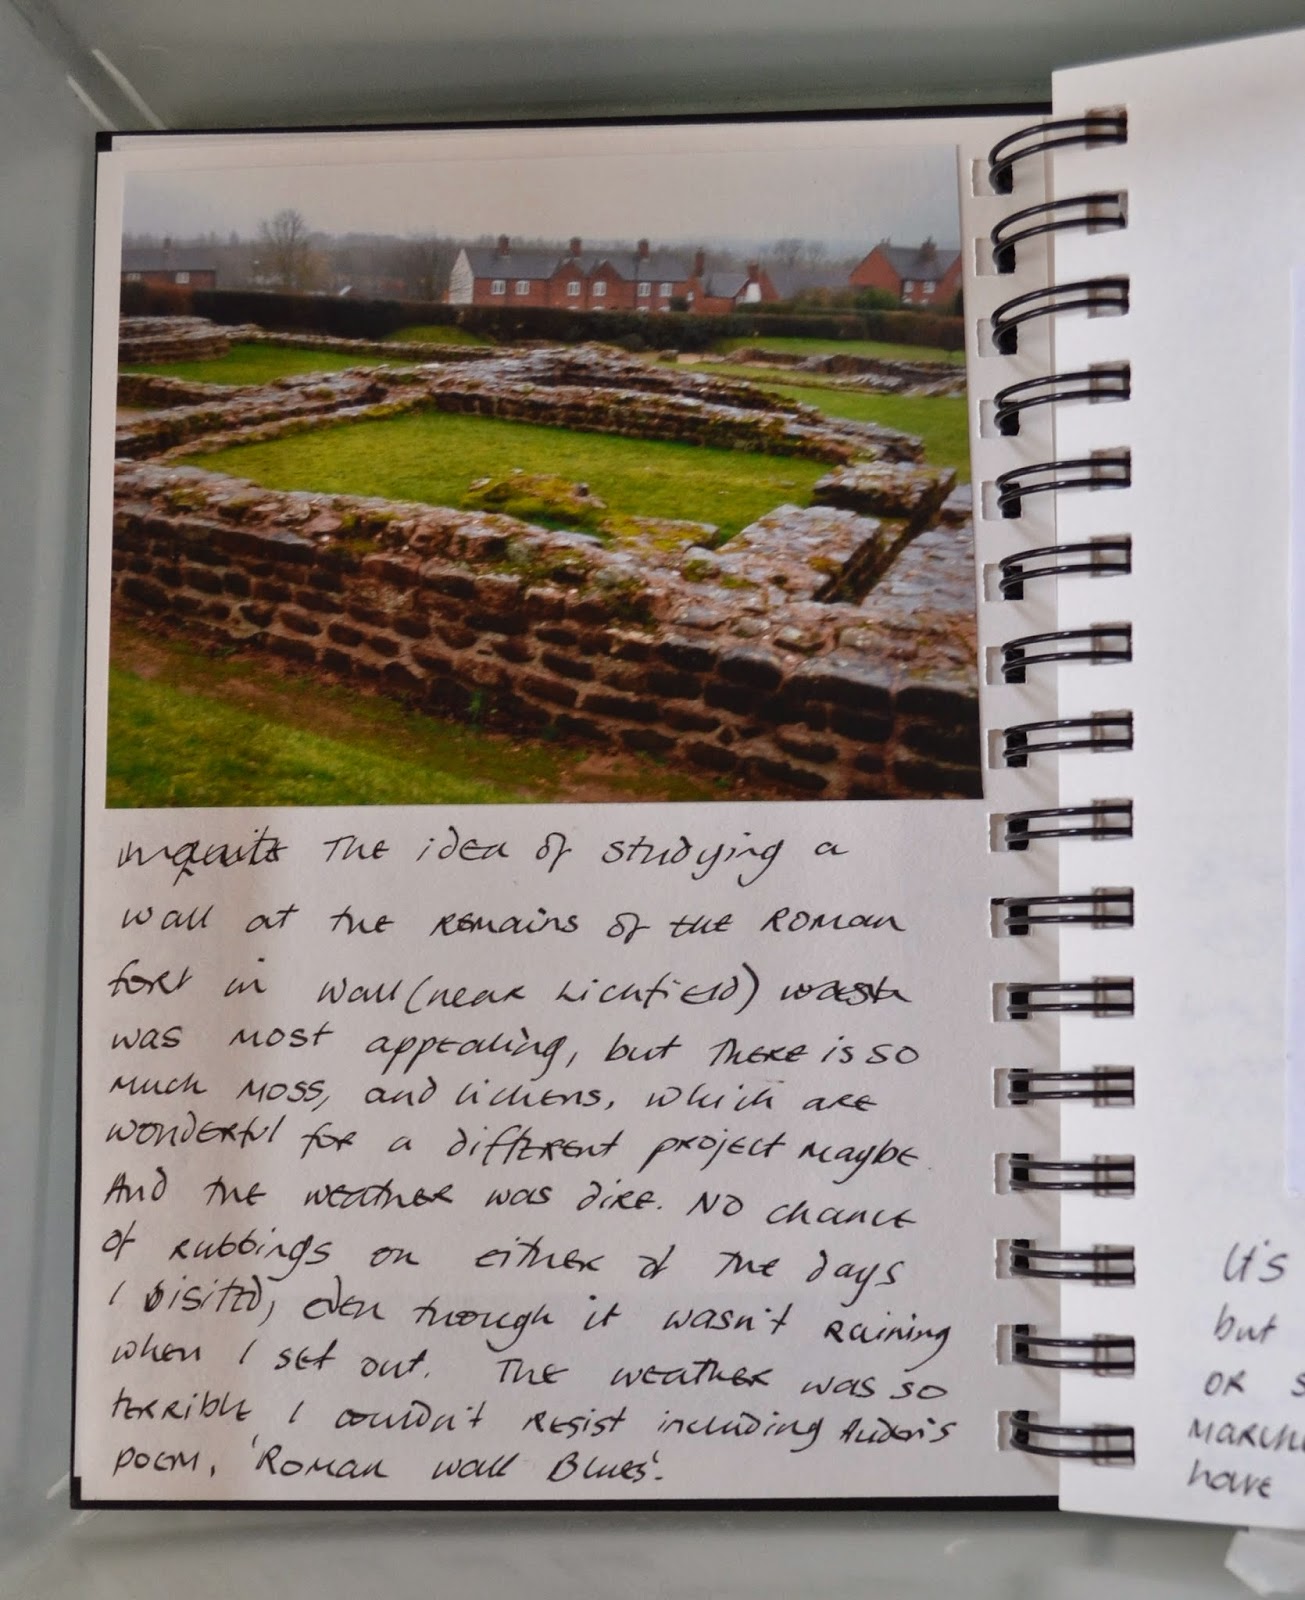 The idea of studying a
wall at the remains of the Roman
fort in Wall (near Lichfield)
was most appealing, but there is so
much moss, and lichens, which are
wonderful for a different project maybe.
And the weather was dire. No chance
of rubbings on either of the days
I visited, even though it wasn't raining
when I set out. The weather was so
terrible I couldn't resist including Auden's
poem, 'Roman Wall Blues'.
It's
but
or s
have